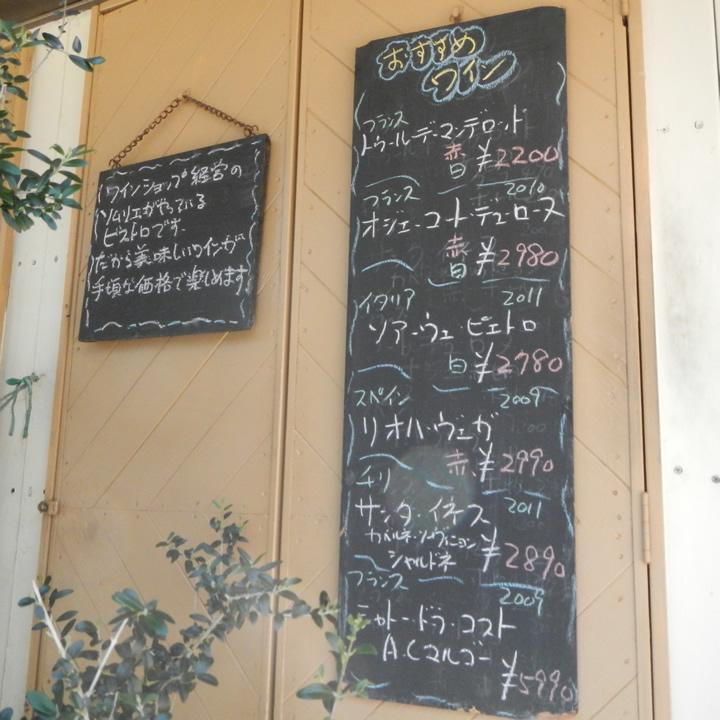 ワインショップ経営の
ソムリエがやっている
ビストロです。
だから美味しいワインが
手頃な価格で楽しめます
おすすめ
ワイン
フランス
トゥールデ・マンデロッド
赤
白 ¥2200
フランス 2010
オジェ・コート・デュ・ローヌ
赤
白 ¥2980
イタリア 2011
ソアーヴェ・ピエトロ
白 ¥2780
スペイン 2009
リオハ・ヴェガ
赤 ¥2990
チリ 2011
サンタ・イネス
カベルネ・ソーヴィニョン
シャルドネ ¥2890
フランス 2009
シャトー・ドラ・コスト
A.C マルゴー
¥5990